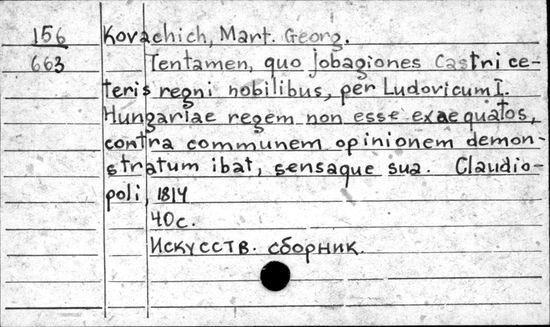 156 Kovachich, Mart. Georg.
663 Tentamen, quo jobagiones Castri ce-
teris regni nobilibus, per Ludovicum I.
Hungariae regem non esse exaequatos,
contra communem opinionem demon-
stratum ibat, sensaque sua. Claudio-
poli, 1814
40 c.
Искусств. сборник.